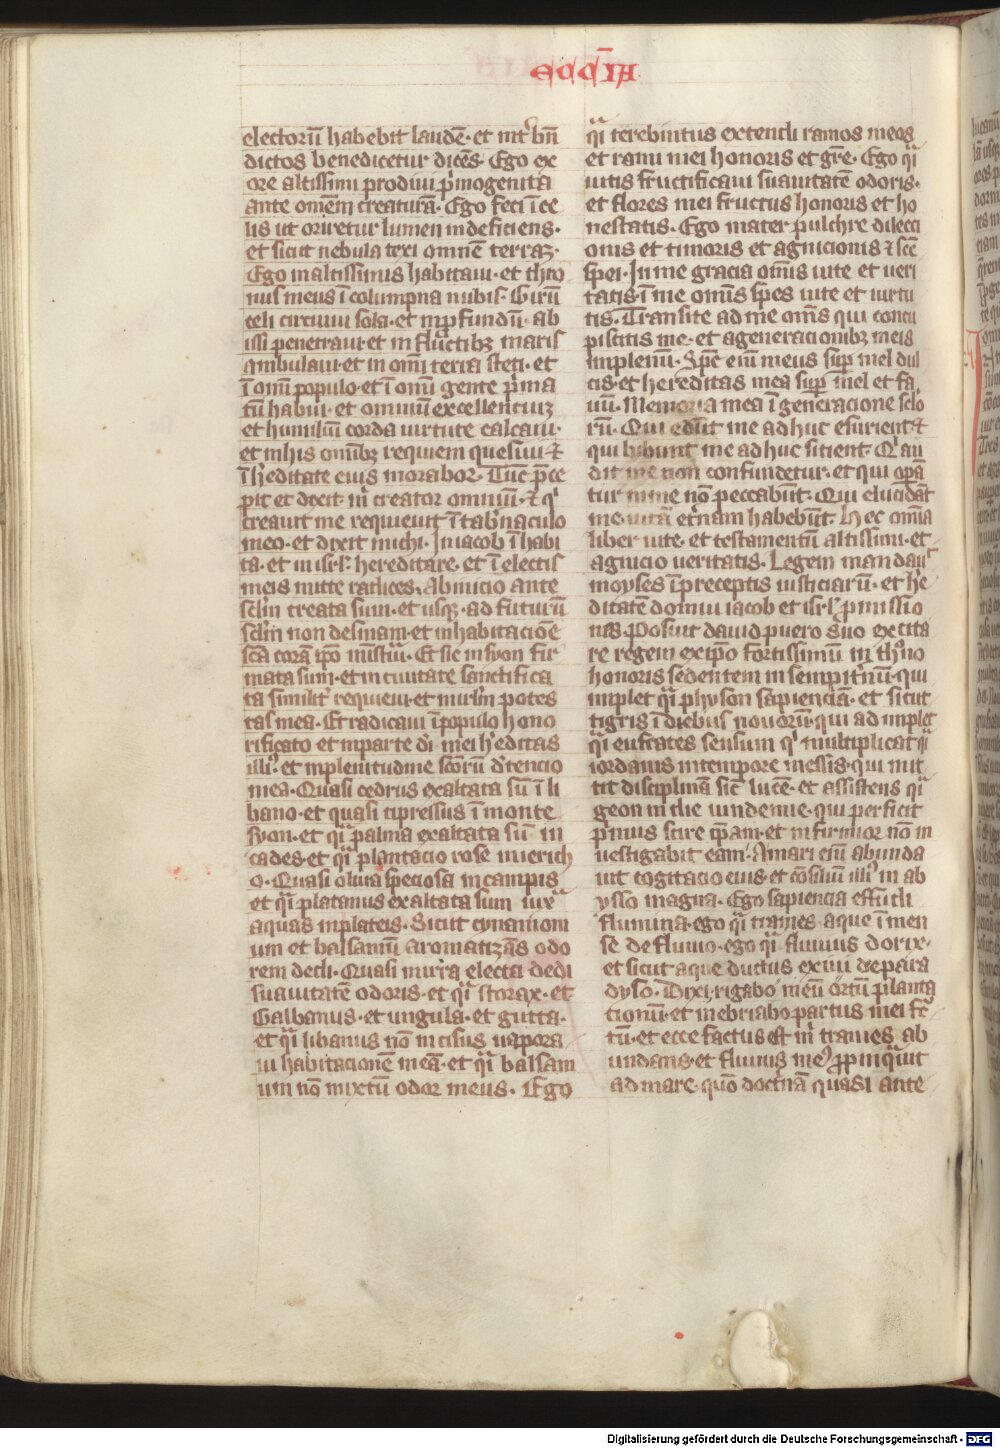 eccl̅ia
electoru̅ habebit laude̅· et int͛ bn̅
dictos benedicetur dice̅s· Ego ex
ore altissimi prodiui p̓mogenita
ante om̅em creatura̅· Ego feci i̅ ce
lis ut oriretur lumen indeficiens·
et sicut nebula texi omne̅ terra̅·
Ego in altissimis habitaui· et thro
nus meus i̅ columpna nubis· Giru̅
celi circuiui sola· et in p̱fundu̅· ab
issi penetraui· et in fluctibꝫ maris
ambulaui· et in om̅i terra steti· et
i̅ om̅i populo· et i̅ om̅i gente p̓ma
tu̅ habui· et omniu̅ excellentiuꝫ
et humiliu̅ corda uirtute calcaui·
et in his om̅ibꝫ requiem quesiui ⁊
i̅ h̓editate eius morabor· Tu̅c p̅ce
pit et dixit m̓ creator omniu̅· ⁊ q̓
creauit me requieuit i̅ tab̓naculo
meo· et dixit michi· In iacob i̅habi
ta· et in isr̅l· hereditare· et i̅ electis
meis mitte radices· Ab inicio ante
sc̅lm creata sum· et usqꝫ· ad futuru̅
sc̅lm non desinam· et in habitacio̅e
sc̅a cora̅ ip̅o mi̅st̓ui· Et sic in syon fir
mata sum· et in ciuitate sanctifica
ta similit͛ requieui· et in irl̅m potes
tas mea· Et radicaui i̅ populo hono
rificato et in parte di̅ mei h̓editas
illi᷒· et in plenitudine sc̅oru̅ d̓tencio
mea· Quasi cedrus exaltata su̅ i̅ li
bano· et quasi cipressus i̅ monte
syon· et qͣi palma exaltata su̅ in
cades· et qͣi plantacio rose in iericͪ
o· Quasi oliua speciosa in campis
et qͣi platanus exaltata sum iuxͣ
aquas in plateis· Sicut cynamom
um et balsamu̅ aromatiza̅s odo
rem dedi· Quasi mirra electa dedi
suauitate̅ odoris· et qͣi storax· et
Galbanus· et ungula· et gutta·
et qͣi libanus no̅ incisus uapora
ui habitacione̅ mea̅· et qͣi balsam
um no̅ mixtu̅ odor meus· Ego
qͣi terebintus extendi ramos meos
et rami mei honoris et gr̅e· Ego qͣi
uitis fructificaui suauitate̅ odoris·
et flores mei fructus honoris et ho
nestatis· Ego mater pulchre dilecti
onis et timoris et agnicionis ⁊ sc̅e
spei· In me gracia om̅is uite et ueri
tatis· i̅ me om̅is spes uite et uirtu
tis· Transite ad me om̅s qui concu
piscitis me· et a generacionibꝫ meis
implemi̅· Sp̅c eni̅ meus sup̱ mel dul
cis· et hereditas mea sup̱ mel et fa
uu̅· Memoria mea i̅ generacione sc̅lo
ru̅· Qui edu̅t me adhuc esurient ⁊
qui bibunt me adhuc sitient· Q͛ au
dit me non confundetur· et qui op̱a̅
tur in me no̅ peccabu̅t· Qui elucida̅t
me uita̅ et̓nam habebu̅t· Hec om̅ia
liber uite· et testamentu̅ altissimi· et
agnicio ueritatis· Legem mandauit
moyses i̅ preceptis iusticiaru̅· et he
ditate̅ domui iacob et isr̅l· p̱missio
nes· Posuit dauid puero suo excita
re regem ex ipo fortissimu̅ in thͦno
honoris sedentem in sempit̓nu̅· qui
implet qͣi physon sapiencia̅· et sicut
tigris i̅ diebus nouoru̅· qui adimplet
qͣi eufrates sensum q̓ multiplicat qͣi
iordanis in tempore messis· qui mit
tit disciplina̅ sic̅ luce̅· et assistens qͣi
geon in die uindemie· qui perficit
p̓mus scire ip̅am· et infirmior no̅ in
uestigabit eam· A mari eni̅ abunda
uit cogitacio eius· et co̅siliu̅ illi᷒ in ab
ysso magna· Ego sapiencia effudi
flumina· ego qͣi trames aque i̅men
se de fluuio· ego qͣi fluuius dorix·
et sicut aque ductus exiui de para
dyso· Dixi· rigabo meu̅ ortu̅ planta
tionu̅· et inebriabo partus mei fc̅
tu̅· et ecce factus est m̓ trames ab
undans· et fluuius me᷒ p̱pinq̓uit
ad mare· quo̅ doctr̓na̅ quasi ante
Digitalisierung gefördert durch die Deutsche Forschungsgemeinschaft - DFG